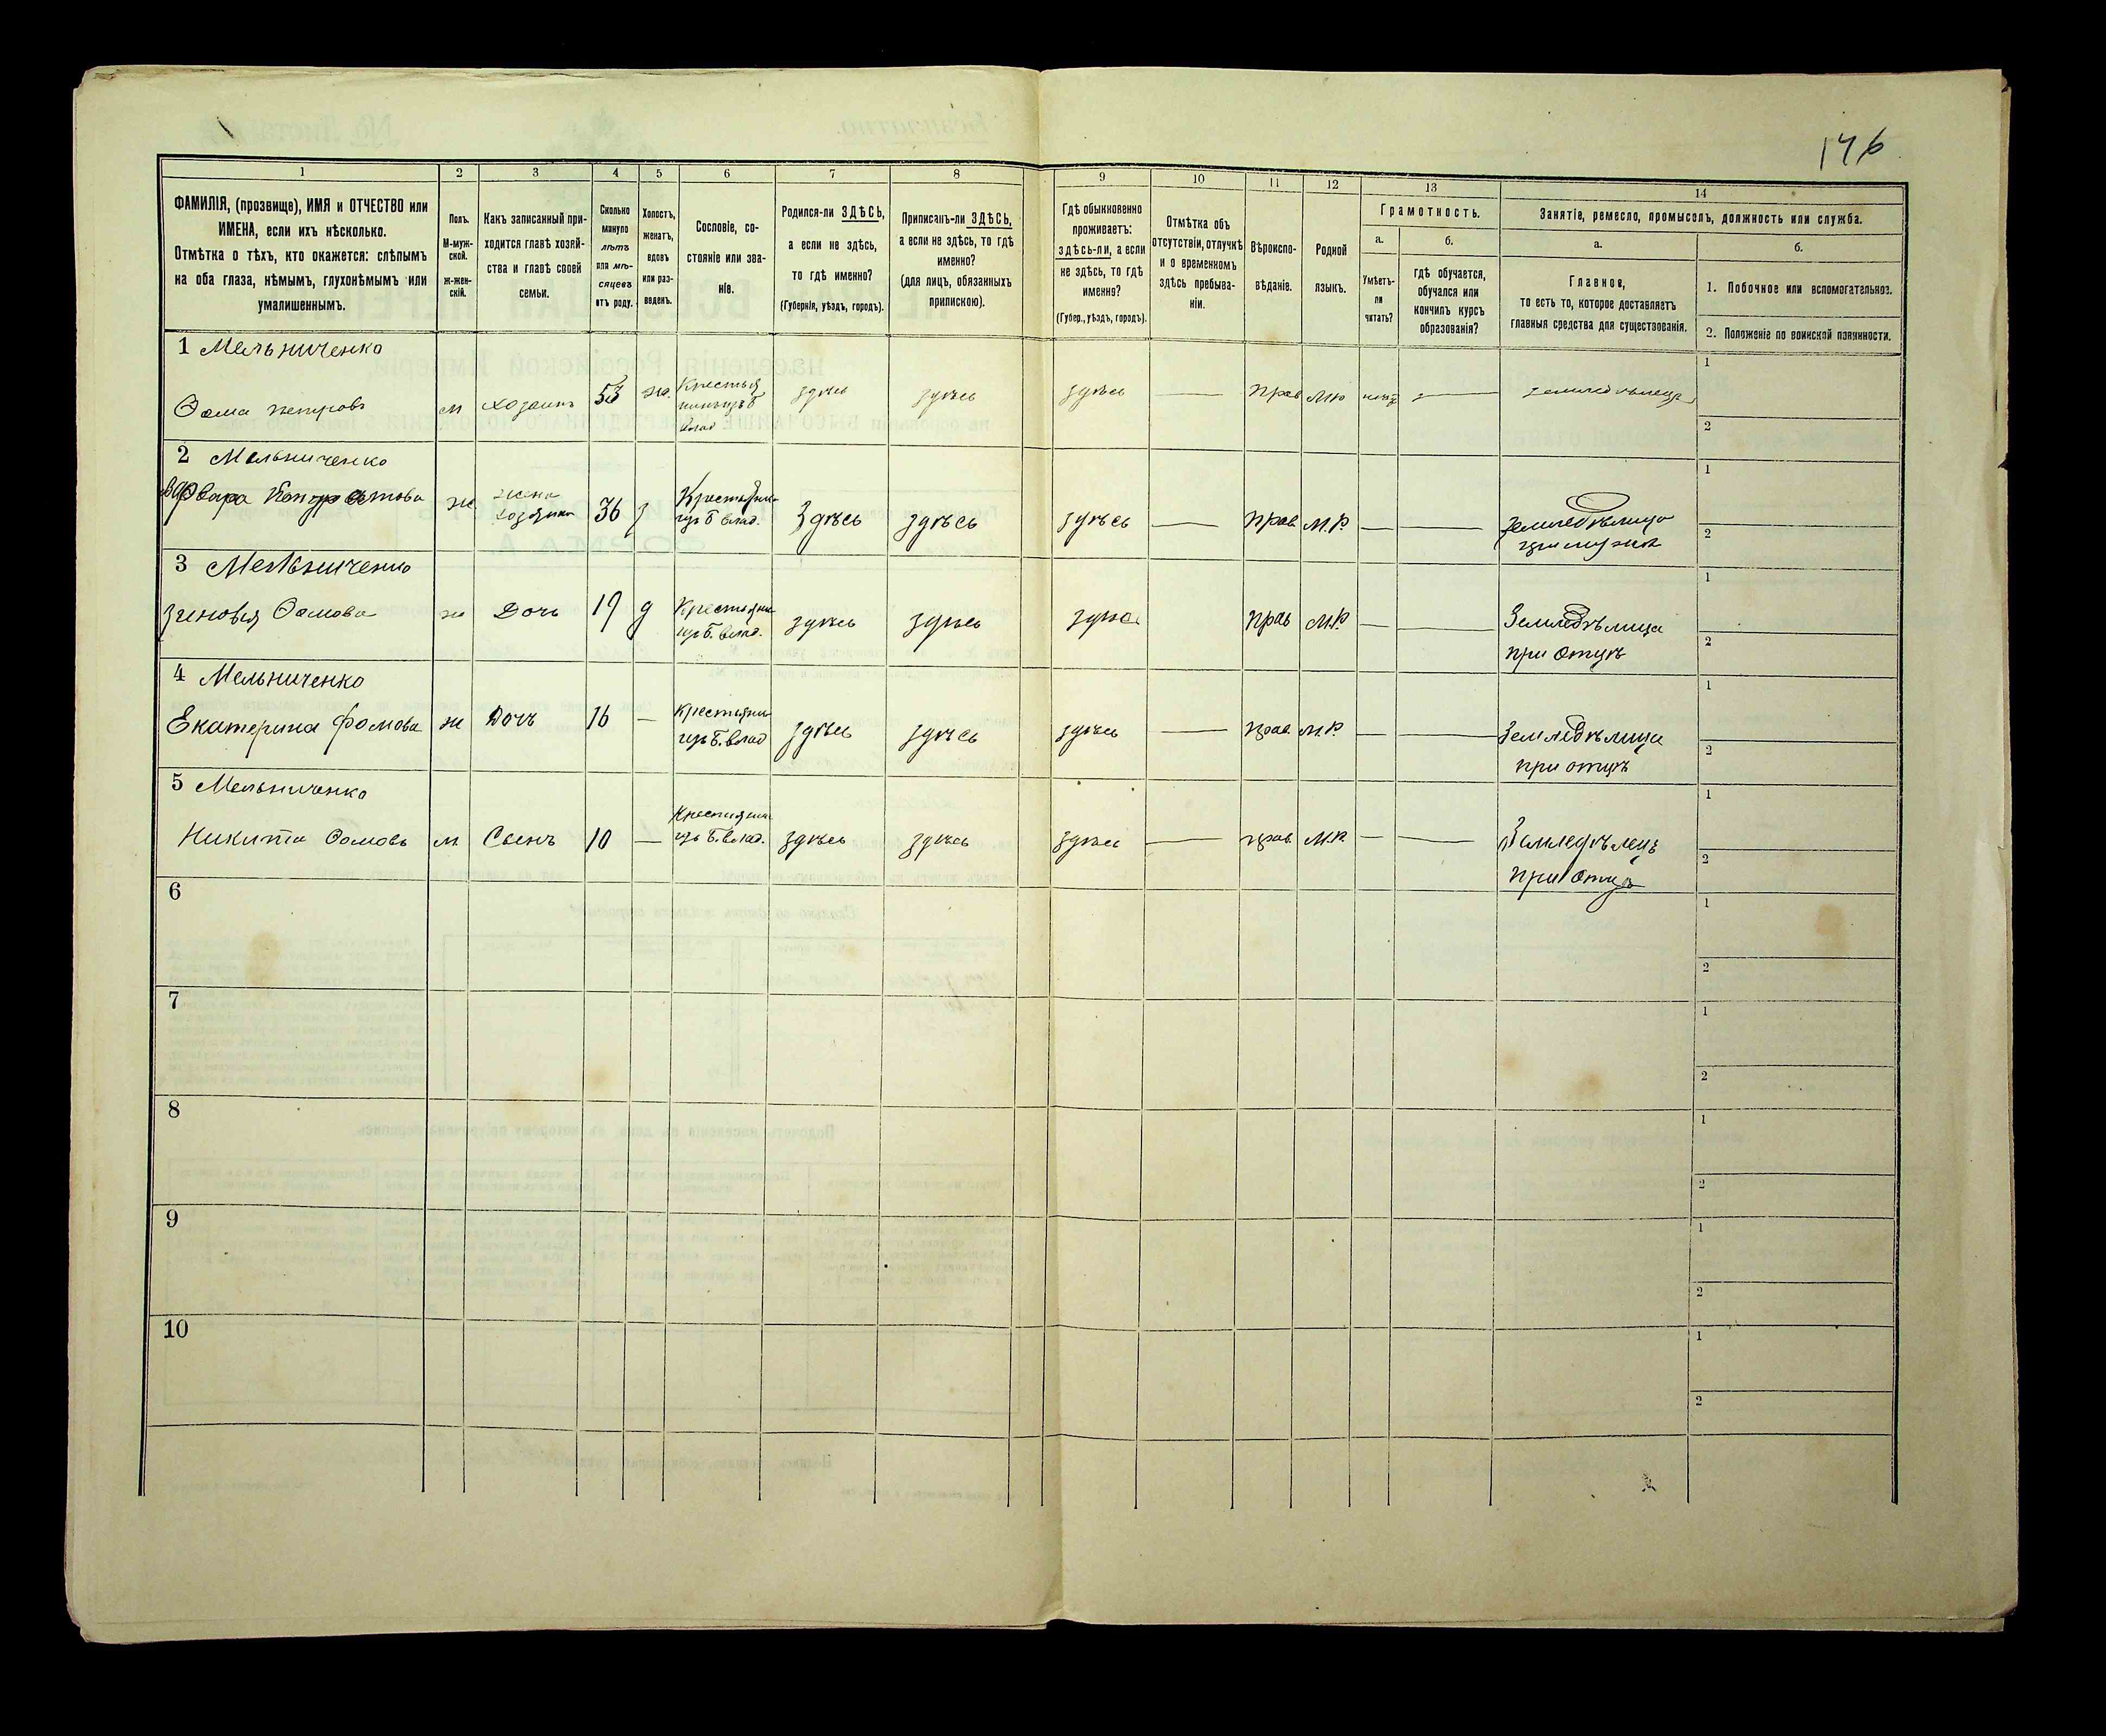 176
1 2 3 4 5 6 7 8 9 10 11 12 13 14
ФАМИЛІЯ, (прозвище), ИМЯ и ОТЧЕСТВО или
ИМЕНА, если ихъ нѣсколько.
Отмѣтка о тѣхъ, кто окажется: слѣпымъ
на оба глаза, нѣмымъ, глухонѣмымъ или
умалишеннымъ.
Полъ.
М-муж-
ской.
ж-жен-
скій.
Какъ записанный при-
ходится главѣ хозяй-
ства и главѣ своей
семьи.
Сколько
минуло
лѣтъ
или мѣ-
сяцевъ
отъ роду.
Холостъ,
женатъ,
вдовъ
или раз-
веденъ.
Сословіе, со-
стояніе или зва-
ніе.
Родился-ли ЗДѢСЬ,
а если не здѣсь,
то гдѣ именно?
(Губернія, уѣздъ, городъ).
Приписанъ-ли ЗДѢСЬ,
а если не здѣсь, то гдѣ
именно?
(для лицъ, обязанныхъ
припискою).
Гдѣ обыкновенно
проживаетъ:
здѣсь-ли, а если
не здѣсь, то гдѣ
именно?
(Губер., уѣздъ, городъ).
Отмѣтка объ
отсутствіи, отлучкѣ
и о временномъ
здѣсь пребыва-
ніи.
Вѣроиспо-
вѣданіе.
Родной
языкъ.
Грамотность.
а. б.
Умѣетъ-
ли
читать?
гдѣ обучается,
обучался или
кончилъ курсъ
образованія?
Занятіе, ремесло, промыселъ, должность или служба.
а. б.
Главное,
то есть то, которое доставляетъ
главныя средства для существованія.
1. Побочное или вспомогательное.
2. Положеніе по воинской повинности.
1 Мельниченко
Ѳома петровъ м хозаинъ 53 ж. Крестья здѣсь здѣсь здѣсь — Прав — земледѣлецъ
влад
1
2
2 Мельниченко
Ж жена 36 Крестьяни
изъ б влад. Здѣсь здѣсь здѣсь — прав М.Р. — — земледѣлица
1
2
3 Мельниченко
Ѳомова ж Дочь 19 д Крестьяни
изъ б. влад. здѣсь здѣсь прав М.Р. — — Земледѣлица
при отцѣ
1
2
4 Мельниченко
Екатерина Фомова ж Дочь 16 — Крестьяни
изъ б. влад здѣсь здѣсь здѣсь — прав М.Р. — — Земледѣлица
при отцѣ
1
2
5 Мельниченко
Никита Ѳомовъ м Сынъ 10 — Крестияни
изъ б. влад. здѣсь здѣсь здѣсь — прав М.Р. — — Земледѣлецъ
при отцѣ
1
2
6
1
2
7
1
2
8
1
2
9
1
2
10
1
2